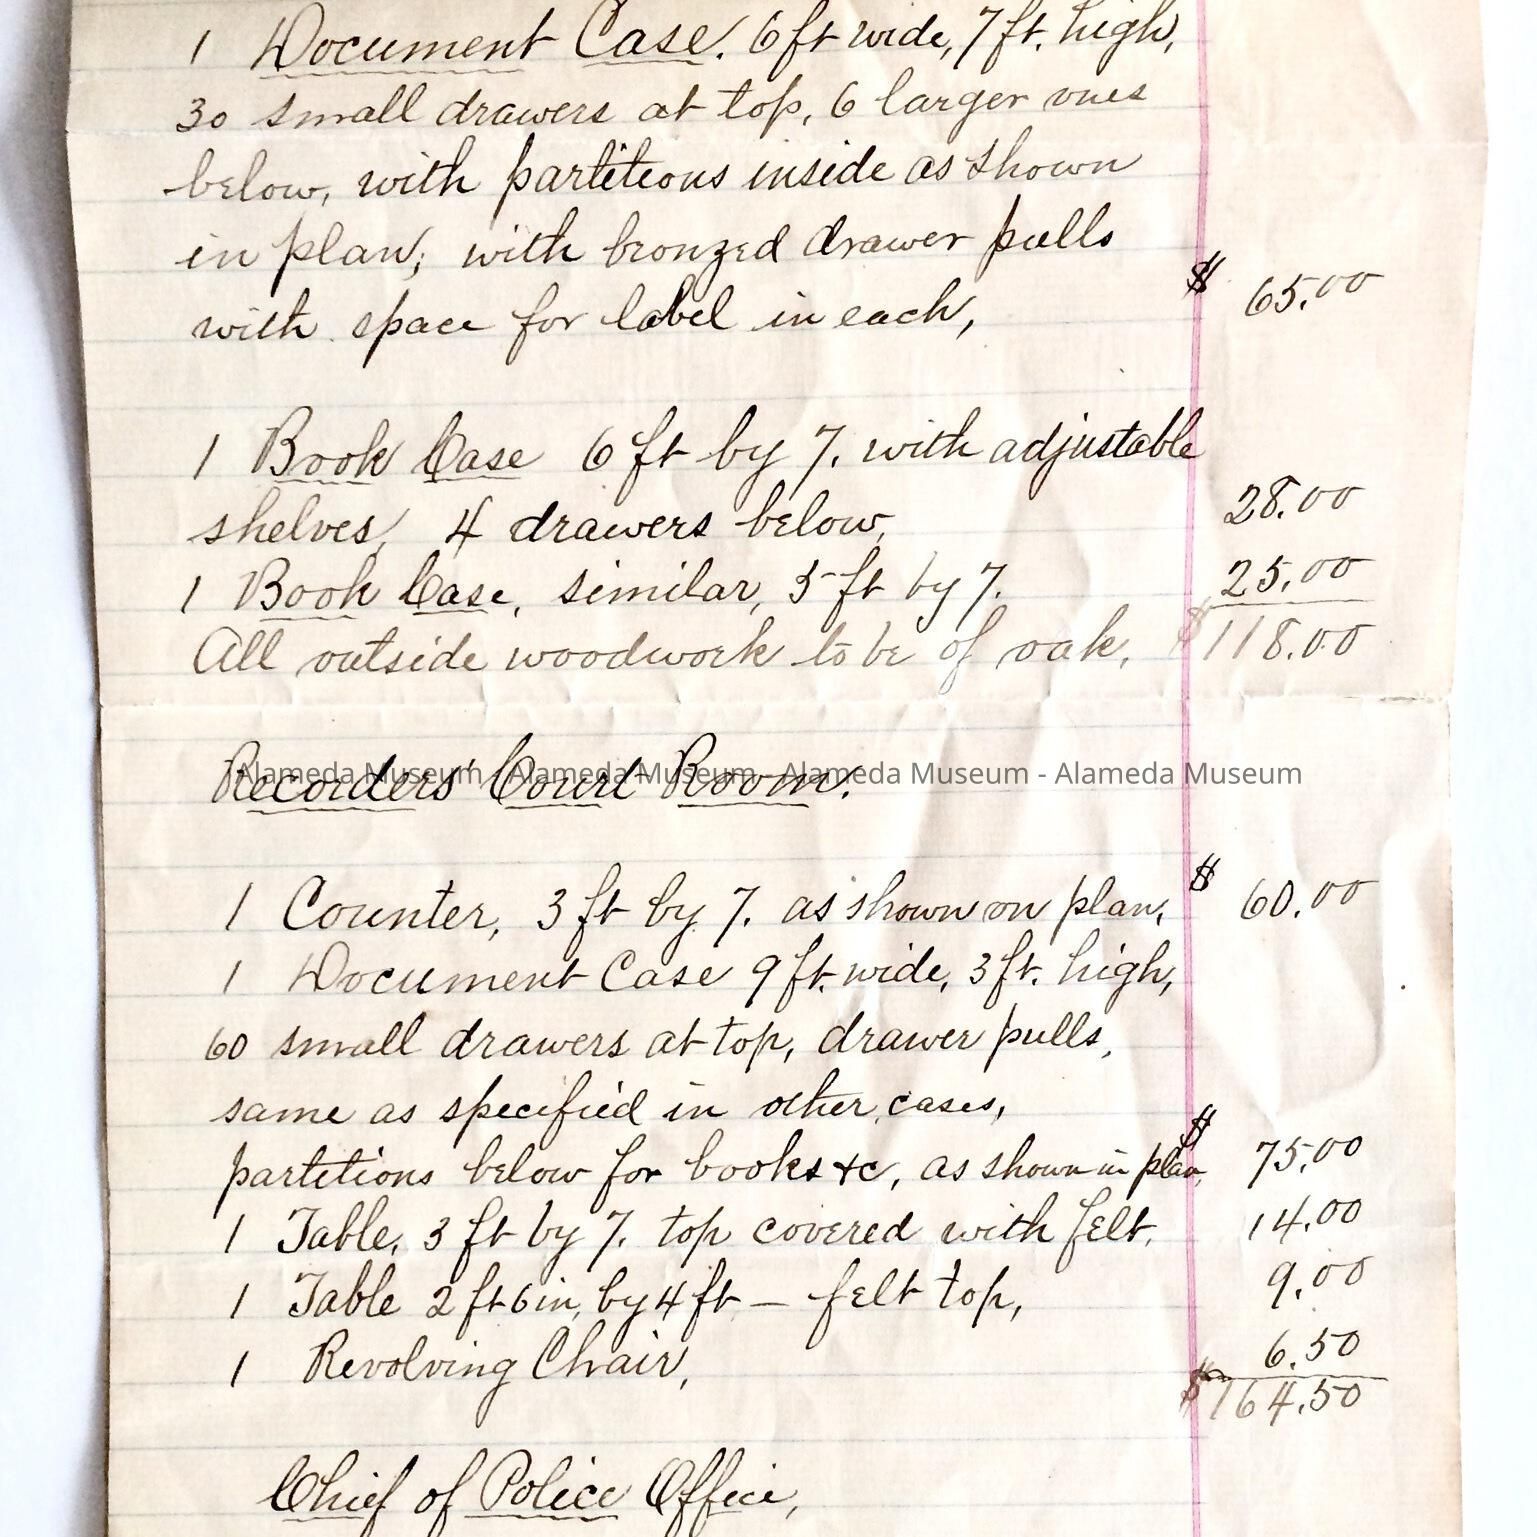 1 Document Case. 6 ft wide, 7 ft. high,
30 small drawers at top, 6 larger ones
below, with partitions inside as shown
in plan; with bronzed drawer pulls
with space for label in each, $ 65.00
1 Book Case 6 ft by 7. with adjustable
shelves, 4 drawers below, 28.00
1 Book Case, similar, 5 ft by 7. 25.00
All outside woodwork to be of oak. $118.00
Recorders' Court Room.
Alameda Museum - Alameda Museum - Alameda Museum - Alameda Museum
1 Counter, 3 ft by 7. as shown on plan, $ 60.00
1 Document Case 9 ft. wide, 3 ft. high,
60 small drawers at top, drawer pulls,
same as specified in other cases,
partitions below for books &c, as shown in plan, $ 75.00
1 Table, 3 ft by 7. top covered with felt. 14.00
1 Table 2 ft 6 in, by 4 ft — felt top, 9.00
1 Revolving Chair, 6.50
$164.50
Chief of Police Office,